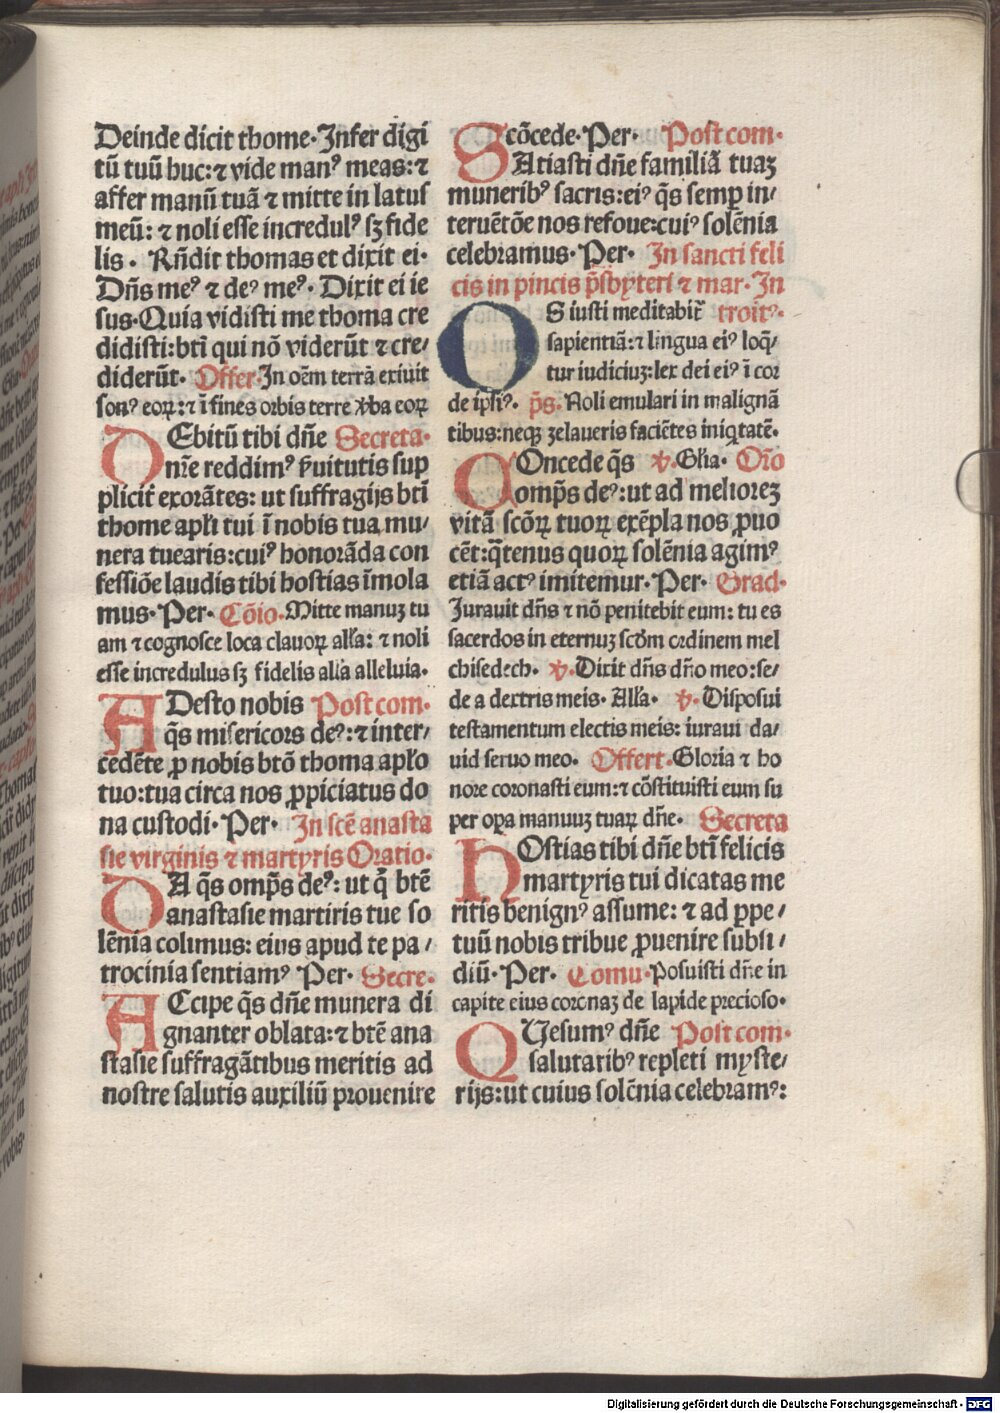 Deinde dicit thome·Infer digi
tū tuū huc: ⁊ vide manꝰ meas: ⁊
affer manū tuā ⁊ mitte in latus
meū: ⁊ noli esse incredulꝰ sꝫ fide
lis· Rñdit thomas et dixit ei·
Dñs meꝰ ⁊ deꝰ meꝰ· Dixit ei ie
sus·Quia vidisti me thoma cre
didisti:bti qui nō viderūt ⁊ cre/
diderūt· Offer·In oēm terrā exiuit
sonꝰ eoꝝ: ⁊ ī fines orbis terre ꝟba eoꝝ
DEbitū tibi dñe Secreta·
nr̄e reddimꝰ ẜuitutis sup
plicit̄ exorātes: ut suffragijs bti
thome apłi tui ī nobis tua mu/
nera tuearis:cuiꝰ honorāda con
fessiōe laudis tibi hostias īmola
mus·Per· Cōio·Mitte manuꝫ tu
am ⁊ cognosce loca clauoꝝ alła: ⁊ noli
esse incredulus sꝫ fidelis alła alleluia·
ADesto nobis Postcom·
q̄s misericors deꝰ: ⁊ inter/
cedēte ꝓ nobis btō thoma apło
tuo:tua circa nos ꝓpiciatus do
na custodi·Per· In scē anasta
sie virginis ⁊ martyris Oratio·
DA q̄s omp̄s deꝰ: ut q̄ btē
anastasie martiris tue so
lēnia colimus: eius apud te pa/
trocinia sentiamꝰ Per· Secre·
ACcipe q̄s dñe munera di
gnanter oblata: ⁊ btē ana
stasie suffragātibus meritis ad
nostre salutis auxiliū prouenire
cōcede·Per· Postcom·
SAtiasti dñe familiā tuaꝫ
muneribꝰ sacris:eiꝰ q̄s semꝑ in/
teruētōe nos refoue:cuiꝰ solēnia
celebramus·Per· In sancti feli
cis in pincis p̄sbyteri ⁊ mar·In
OS iusti meditabit̄ troitꝰ·
sapientiā: ⁊ lingua eiꝰ loq̄/
tur iudiciuꝫ:lex dei eiꝰ ī cor
de ipsiꝰ· p̄s·Noli emulari in malignā
tibus:neqꝫ zelaueris faciētes iniq̇tatē·
COncede q̄s ℣·Glīa· Orō
omp̄s deꝰ:ut ad melioreꝫ
vitā scōꝝ tuoꝝ exēpla nos ꝓuo
cēt:q̄tenus quoꝝ solēnia agimꝰ
etiā actꝰ imitemur·Per· Grad·
Jurauit dñs ⁊ nō penitebit eum: tu es
sacerdos in eternuꝫ scdm ordinem mel
chisedech· ℣·Dixit dñs dño meo:se/
de a dextris meis· Alła· ℣·Disposui
testamentum electis meis: iuraui da/
uid seruo meo· Offert·Gloria ⁊ ho
nore coronasti eum: ⁊ cōstituisti eum su
per oꝑa manuuꝫ tuaꝝ dñe· Secreta
HOstias tibi dñe bti felicis
martyris tui dicatas me
ritis benignꝰ assume: ⁊ ad ꝑpe/
tuū nobis tribue ꝓuenire subsi/
diū·Per· Comu·Posuisti dñe in
capite eius coronaꝫ de lapide precioso·
QUesumꝰ dñe Postcom·
salutaribꝰ repleti myste/
rijs:ut cuius solēnia celebramꝰ:
Digitalisierung gefördert durch die Deutsche Forschungsgemeinschaft - DFG